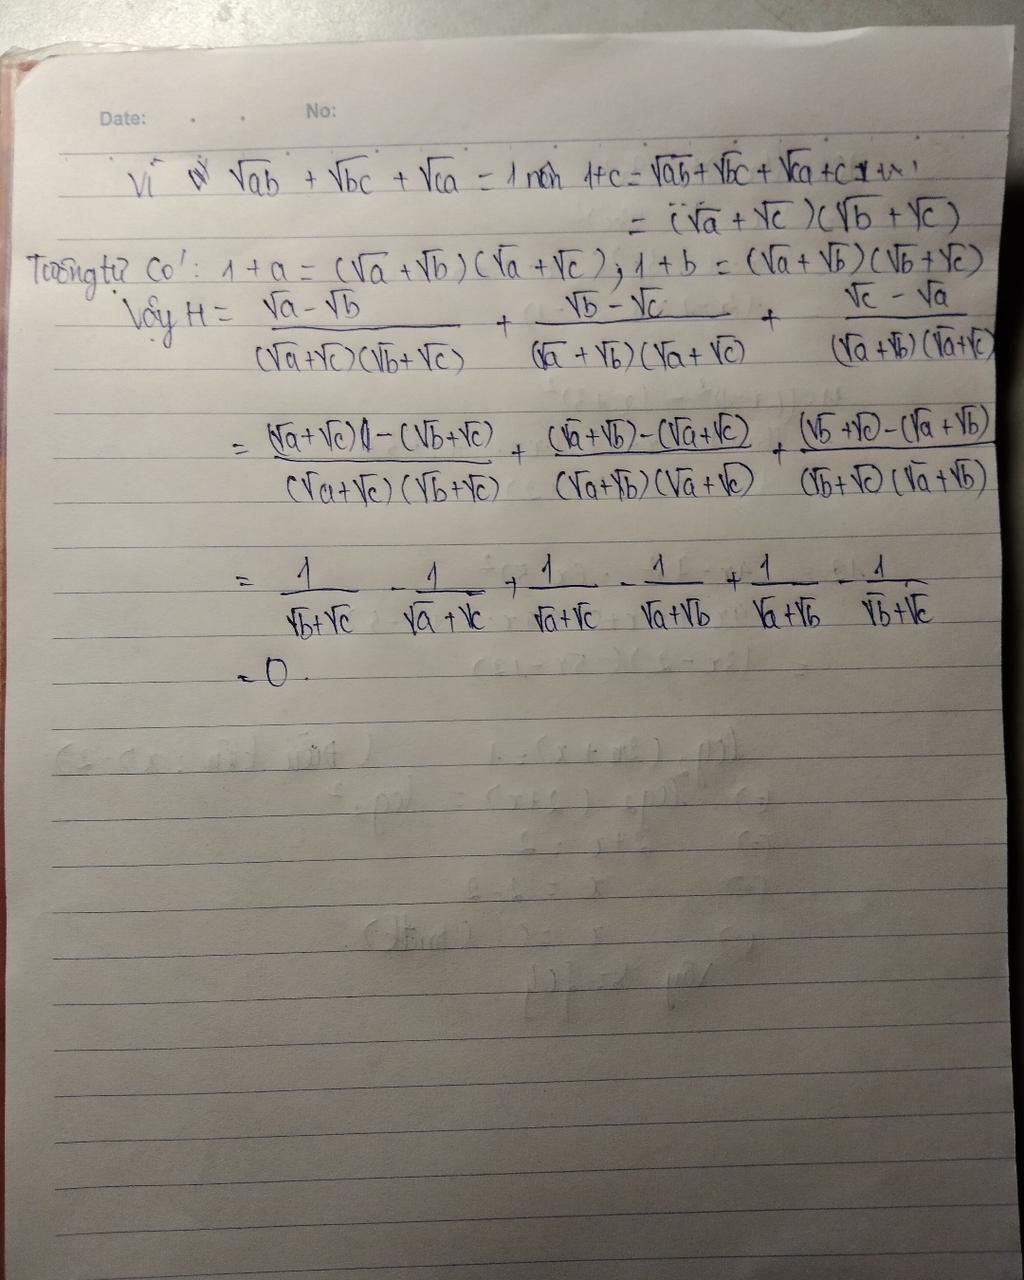 Date: . . No:
Vì √ab + √bc + √ca = 1 nên 1+c = √ab + √bc + √ca + c
= (√a + √c)(√b + √c)
Tương tự có: 1 + a = (√a + √b)(√a + √c); 1 + b = (√a + √b)(√b + √c)
Vậy H = (√a - √b)/((√a+√c)(√b+√c)) + (√b - √c)/((√a + √b)(√a + √c)) + (√c - √a)/((√a+√b)(√a+√c))
= ((√a+√c) - (√b+√c))/((√a+√c)(√b+√c)) + ((√a+√b) - (√a+√c))/((√a+√b)(√a+√c)) + ((√b+√c) - (√a+√b))/((√b+√c)(√a+√b))
= 1/(√b+√c) - 1/(√a+√c) + 1/(√a+√c) - 1/(√a+√b) + 1/(√a+√b) - 1/(√b+√c)
= 0.